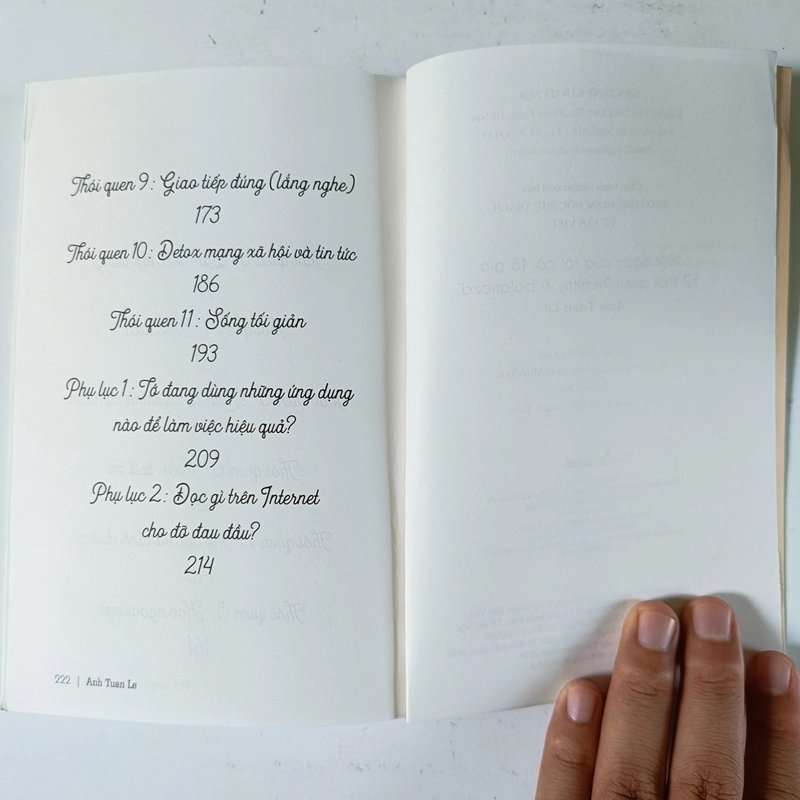 Thói quen 9: Giao tiếp đúng (lắng nghe)
173
Thói quen 10: Detox mạng xã hội và tin tức
186
Thói quen 11: Sống tối giản
193
Phụ lục 1: Tớ đang dùng những ứng dụng
nào để làm việc hiệu quả?
209
Phụ lục 2: Đọc gì trên Internet
cho đỡ đau đầu?
214
222 | Anh Tuan Le